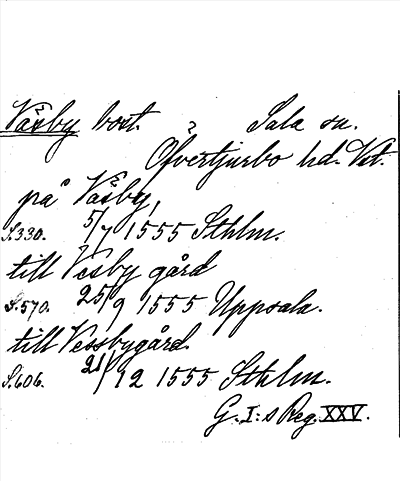 Väsby bost. Sala sn.
Öfvertjurbo hd. Vst.
på Väsby,
S.330. 5/7 1555 Sthlm.
till Vesby gård
S.570. 25/9 1555 Uppsala.
till Vessbygård.
S.606. 21/12 1555 Sthlm.
G. I:s Reg. XXV.